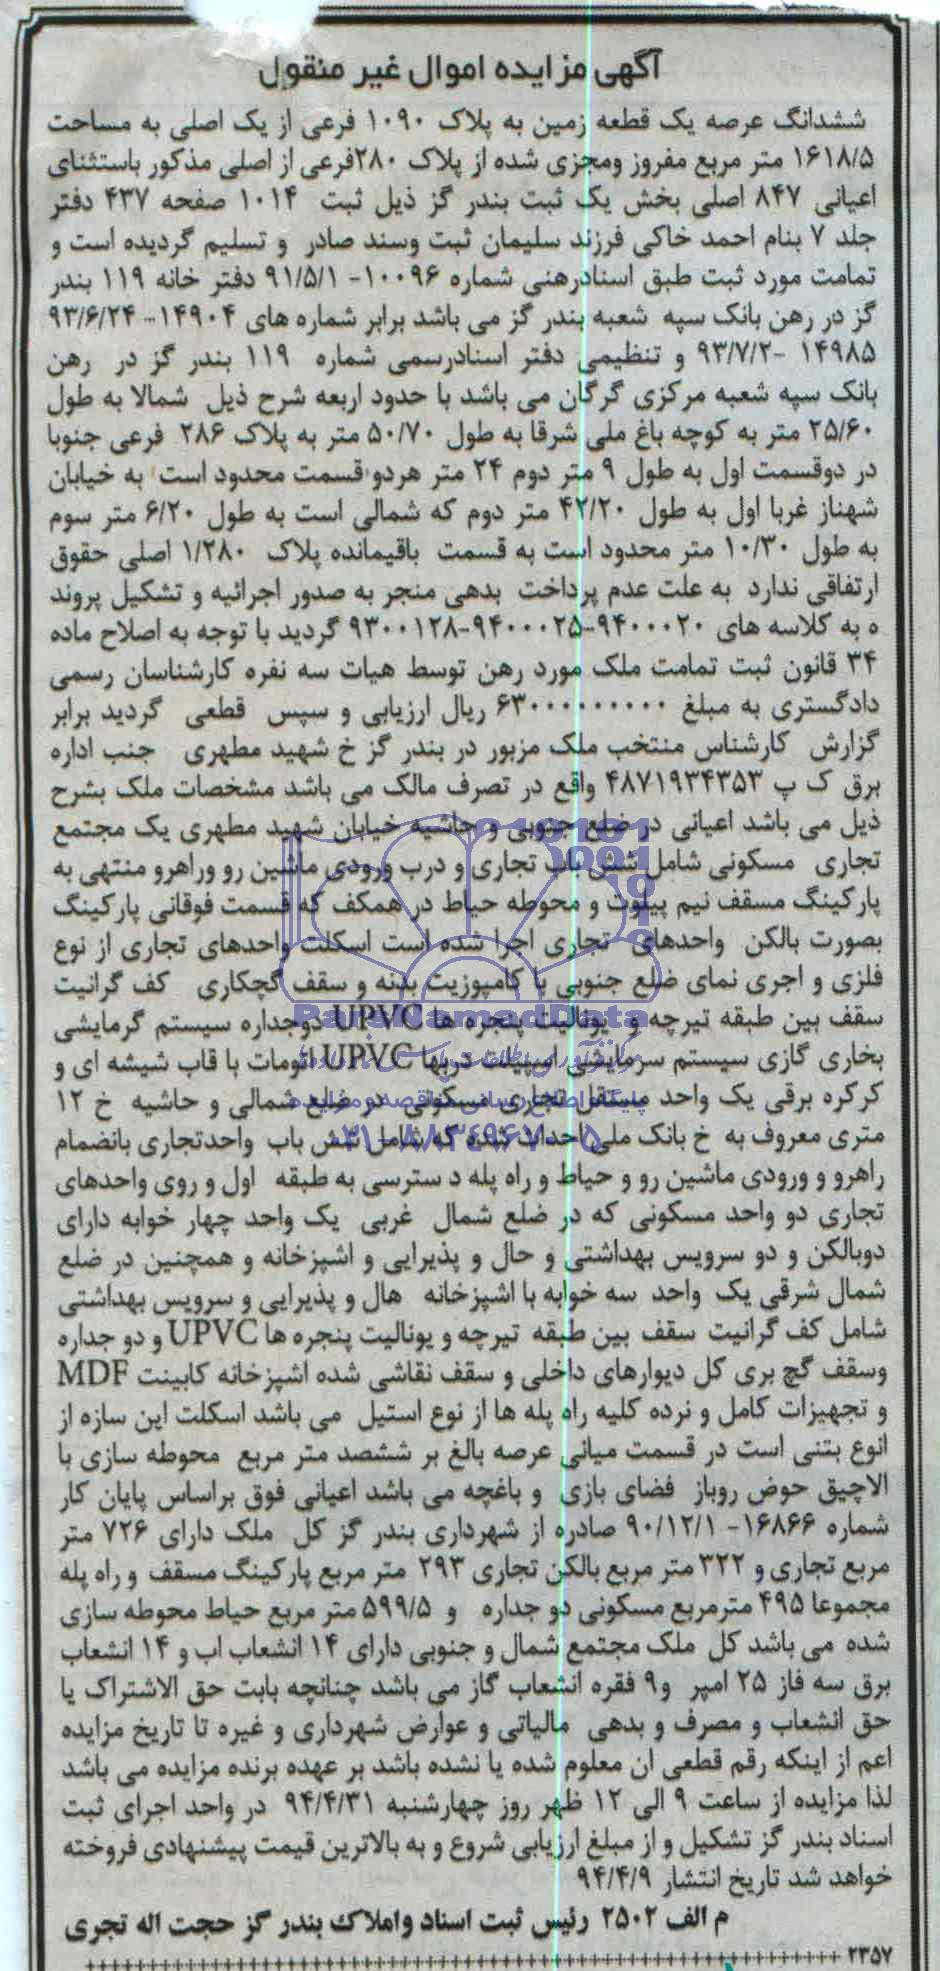 آگهی مزایده اموال غیر منقول
ششدانگ عرصه یک قطعه زمین به پلاک ۱۰۹۰ فرعی از یک اصلی به مساحت
۱۶۱۸/۵ متر مربع مفروز ومجزی شده از پلاک ۲۸۰فرعی از اصلی مذکور باستثنای
اعیانی ۸۴۷ اصلی بخش یک ثبت بندر گز ذیل ثبت ۱۰۱۴ صفحه ۴۳۷ دفتر
جلد ۷ بنام احمد خاکی فرزند سلیمان ثبت وسند صادر و تسلیم گردیده است و
تمامت مورد ثبت طبق اسنادرهنی شماره ۱۰۰۹۶- ۹۱/۵/۱ دفتر خانه ۱۱۹ بندر
گز در رهن بانک سپه شعبه بندر گز می باشد برابر شماره های ۱۴۹۰۴- ۹۳/۶/۲۴
۱۴۹۸۵ -۹۳/۷/۲ و تنظیمی دفتر اسنادرسمی شماره ۱۱۹ بندر گز در رهن
بانک سپه شعبه مرکزی گرگان می باشد با حدود اربعه شرح ذیل شمالا به طول
۲۵/۶۰ متر به کوچه باغ ملی شرقا به طول ۵۰/۷۰ متر به پلاک ۲۸۶ فرعی جنوبا
در دوقسمت اول به طول ۹ متر دوم ۲۴ متر هردو قسمت محدود است به خیابان
شهناز غربا اول به طول ۴۲/۲۰ متر دوم که شمالی است به طول ۶/۲۰ متر سوم
به طول ۱۰/۳۰ متر محدود است به قسمت باقیمانده پلاک ۱/۲۸۰ اصلی حقوق
ارتفاقی ندارد به علت عدم پرداخت بدهی منجر به صدور اجرائیه و تشکیل پروند
ه به کلاسه های ۹۴۰۰۰۲۰-۹۴۰۰۰۲۵-۹۳۰۰۱۲۸ گردید با توجه به اصلاح ماده
۳۴ قانون ثبت تمامت ملک مورد رهن توسط هیات سه نفره کارشناسان رسمی
دادگستری به مبلغ ۶۳۰۰۰۰۰۰۰۰۰ ریال ارزیابی و سپس قطعی گردید برابر
گزارش کارشناس منتخب ملک مزبور در بندر گز خ شهید مطهری جنب اداره
برق ک پ ۴۸۷۱۹۳۴۳۵۳ واقع در تصرف مالک می باشد مشخصات ملک بشرح
ذیل می باشد اعیانی در ضلع جنوبی و حاشیه خیابان شهید مطهری یک مجتمع
تجاری مسکونی شامل شش باب تجاری و درب ورودی ماشین رو وراهرو منتهی به
پارکینگ مسقف نیم پیلوت و محوطه حیاط در همکف که قسمت فوقانی پارکینگ
بصورت بالکن واحدهای تجاری اجرا شده است اسکلت واحدهای تجاری از نوع
فلزی و اجری نمای ضلع جنوبی با کامپوزیت بدنه و سقف گچکاری کف گرانیت
سقف بین طبقه تیرچه و یونالیت پنجره ها UPVC دوجداره سیستم گرمایشی
بخاری گازی سیستم سرمایشی اسپیلت دربها UPVC اتومات با قاب شیشه ای و
کرکره برقی یک واحد مستقل تجاری مسکونی در ضلع شمالی و حاشیه خ ۱۲
متری معروف به خ بانک ملی احداث شده که شامل شش باب واحدتجاری بانضمام
راهرو و ورودی ماشین رو و حیاط و راه پله د سترسی به طبقه اول و روی واحدهای
تجاری دو واحد مسکونی که در ضلع شمال غربی یک واحد چهار خوابه دارای
دوبالکن و دو سرویس بهداشتی و حال و پذیرایی و اشپزخانه و همچنین در ضلع
شمال شرقی یک واحد سه خوابه با اشپزخانه هال و پذیرایی و سرویس بهداشتی
شامل کف گرانیت سقف بین طبقه تیرچه و یونالیت پنجره ها UPVC و دو جداره
وسقف گچ بری کل دیوارهای داخلی و سقف نقاشی شده اشپزخانه کابینت MDF
و تجهیزات کامل و نرده کلیه راه پله ها از نوع استیل می باشد اسکلت این سازه از
انوع بتنی است در قسمت میانی عرصه بالغ بر ششصد متر مربع محوطه سازی با
الاچیق حوض روباز فضای بازی و باغچه می باشد اعیانی فوق براساس پایان کار
شماره ۱۶۸۶۶- ۹۰/۱۲/۱ صادره از شهرداری بندر گز کل ملک دارای ۷۲۶ متر
مربع تجاری و ۳۲۲ متر مربع بالکن تجاری ۲۹۳ متر مربع پارکینگ مسقف و راه پله
مجموعا ۴۹۵ مترمربع مسکونی دو جداره و ۵۹۹/۵ متر مربع حیاط محوطه سازی
شده می باشد کل ملک مجتمع شمال و جنوبی دارای ۱۴ انشعاب اب و ۱۴ انشعاب
برق سه فاز ۲۵ امپر و۹ فقره انشعاب گاز می باشد چنانچه بابت حق الاشتراک یا
حق انشعاب و مصرف و بدهی مالیاتی و عوارض شهرداری و غیره تا تاریخ مزایده
اعم از اینکه رقم قطعی ان معلوم شده یا نشده باشد بر عهده برنده مزایده می باشد
لذا مزایده از ساعت ۹ الی ۱۲ ظهر روز چهارشنبه ۹۴/۴/۳۱ در واحد اجرای ثبت
اسناد بندر گز تشکیل و از مبلغ ارزیابی شروع و به بالاترین قیمت پیشنهادی فروخته
خواهد شد تاریخ انتشار ۹۴/۴/۹
م الف ۲۵۰۲ رئیس ثبت اسناد واملاک بندر گز حجت اله تجری
۲۳۵۷
ParsNamadData
۰۲۱-۸۸۳۴۹۶۷۰-۵